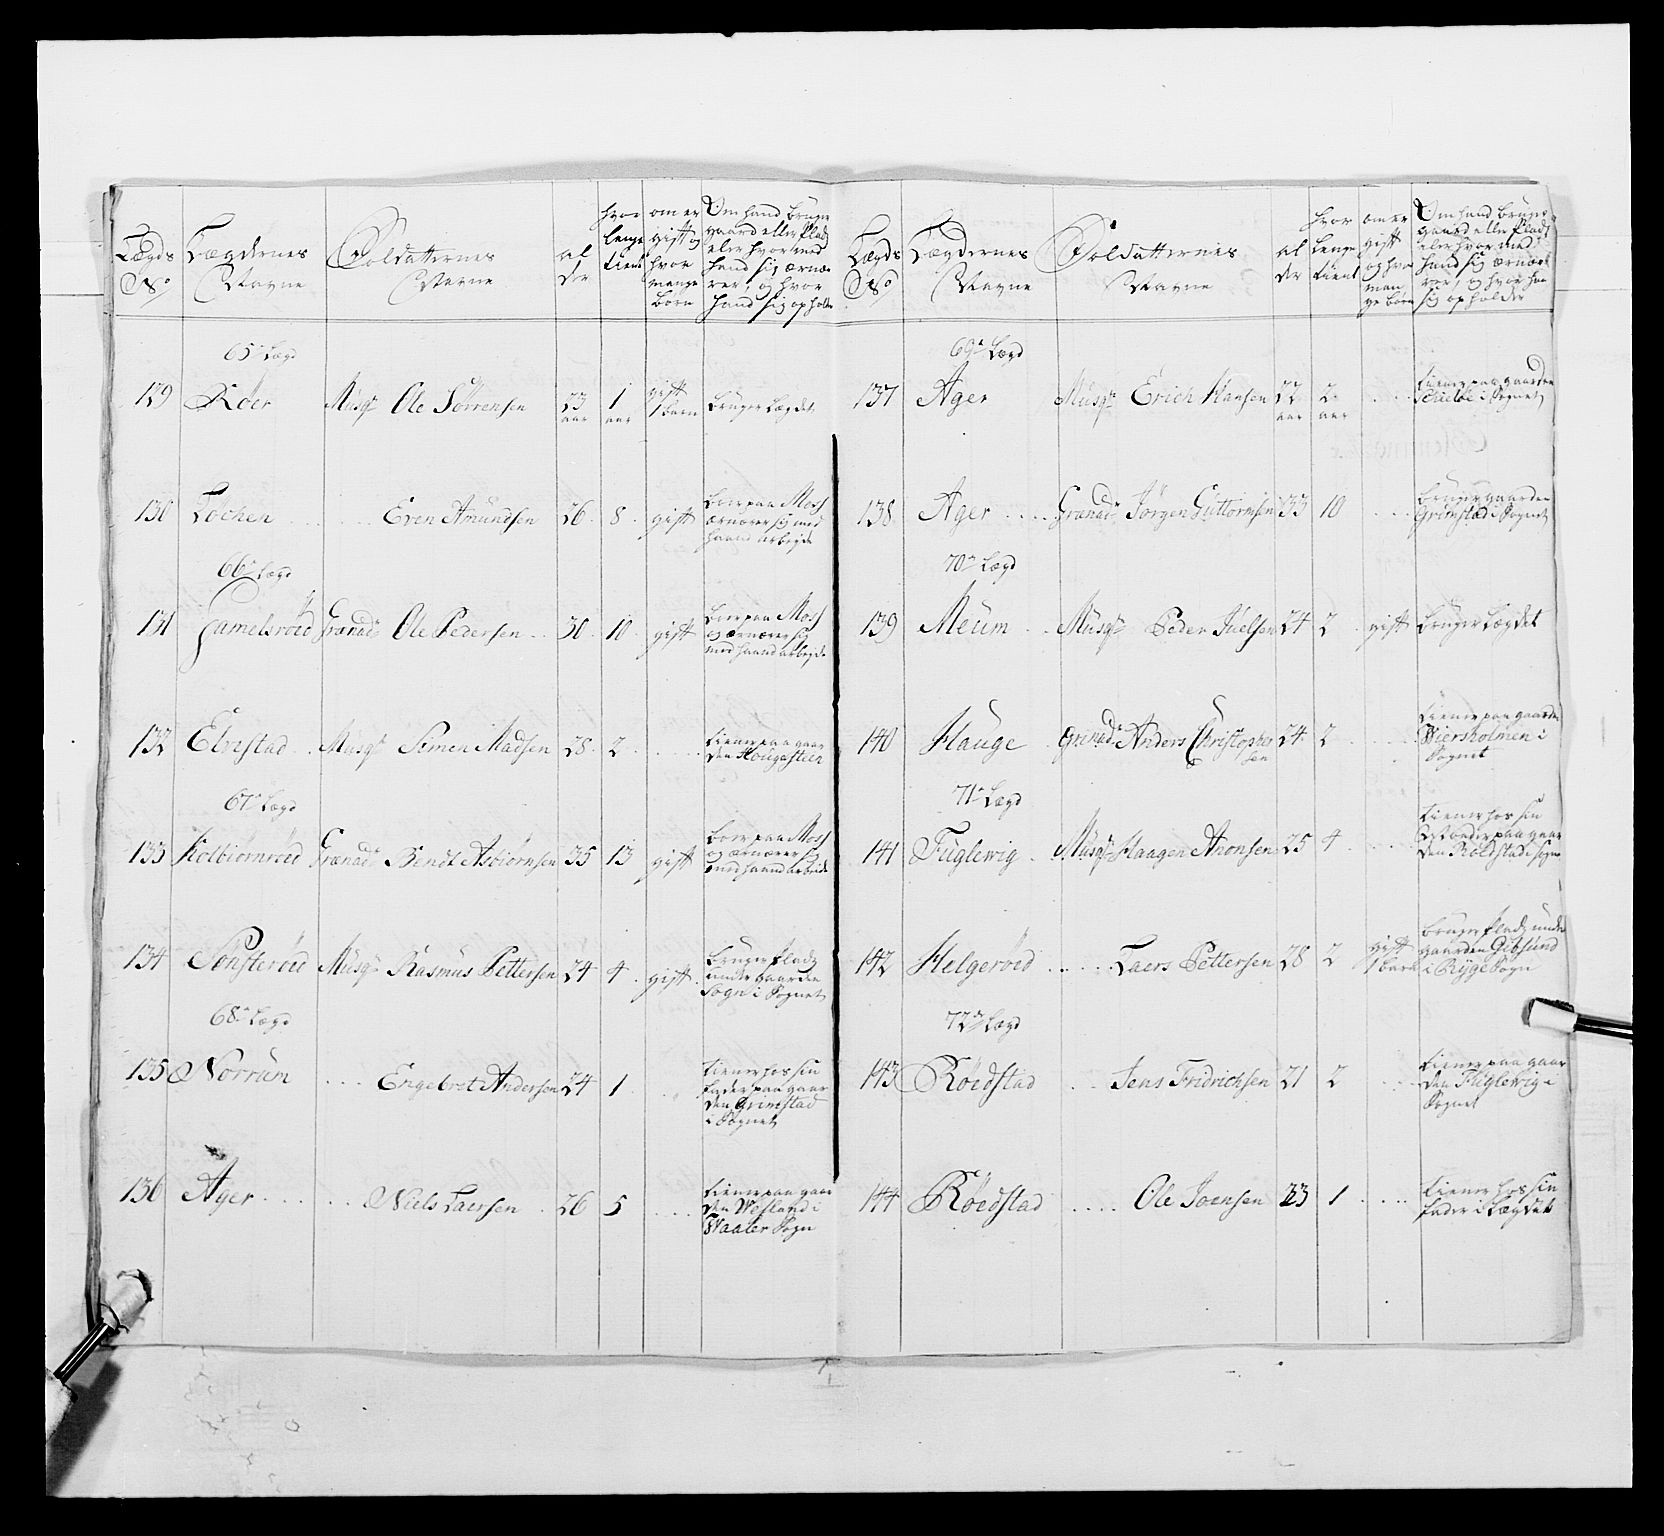 Lægds
No
Lægdernes
Navne
Soldatternes
Navne
al
der
hvor
lenge
tient
om er
gift og
hvor
mange
børn
Om hand bruger
gaard eller Plads
eler hvor med
hand sig ærnæ
rer, og hvor
hand sig opholder
65de Lægd
129 Röer Musqr Ole Sörrensen 23 aar 1 aar gift 1 barn bruger Lægdet
130 Lochen Even Amundsen 26 8 gift boer paa Moss
ærnærer sig med
haand arbejde
66de Lægd
131 Gamelsröd Grænadr Ole Pedersen 30 10 gift boer paa Moss
og ærnærer sig
med haand arbejde
132 Elvestad Musqr Simen Madsen 28 2 tiener paa gaar
den Hougasteen
67de Lægd
133 Kolbiörnröed Grænadr Bendt Asbiörnsen 35 13 gift boer paa Moss
og ærnærer sig
med haand arbeide
134 Sönsteröed Musqr Rasmus Pettersen 24 4 gift bruger Plads
under gaarden
Sogn i Sognet
68de Lægd
135 Norrum Engebret Andersen 24 1 tiener hos sin
fader paa gaar
den Grimstad
i Sognet
136 Ager Niels Laersen 26 5 tiener paa gaar
den Westand i
Waaler Sogn
Lægds
No
Lægdernes
Navne
Soldatternes
Navne
al
der
hvor
lenge
tient
om er
gift
og hvor
man
ge børn
Om hand bruger
gaard eller Plads
eler hvor med
hand sig ærnæ
rer, og hvor han
sig opholder
69de Lægd
137 Ager Musqr Erich Hansen 22 aar 2 aar tiener paa gaarden
i Sognet
138 Ager Grænadr Jörgen Guttormsen 33 10 bruger gaarden
Grimstad i Sognet
70de Lægd
139 Meum Musqr Peder Juelsen 24 2 gift bruger Lægdet
140 Hauge Grenadr Anders Christopher
sen 24 2 tiener paa gaarden
Wiersholmen i
Sognet
71de Lægd
141 Fuglewig Musqr Haagen Aronsen 25 4 tiener hos sin
paa gaar
den Röedstad i Sogne
142 Helgeröed Laers Pettersen 28 2 gift 1 barn bruger Plads under
gaarden Gibsund
i Rÿge Sogn
72de Lægd
143 Röedstad Jens Fridrichsen 21 2 tiener paa gaar
den Fuglewig i
Sognet
144 Röedstad Ole Joensen 23 1 tiener hos sin
fader i Lægdet